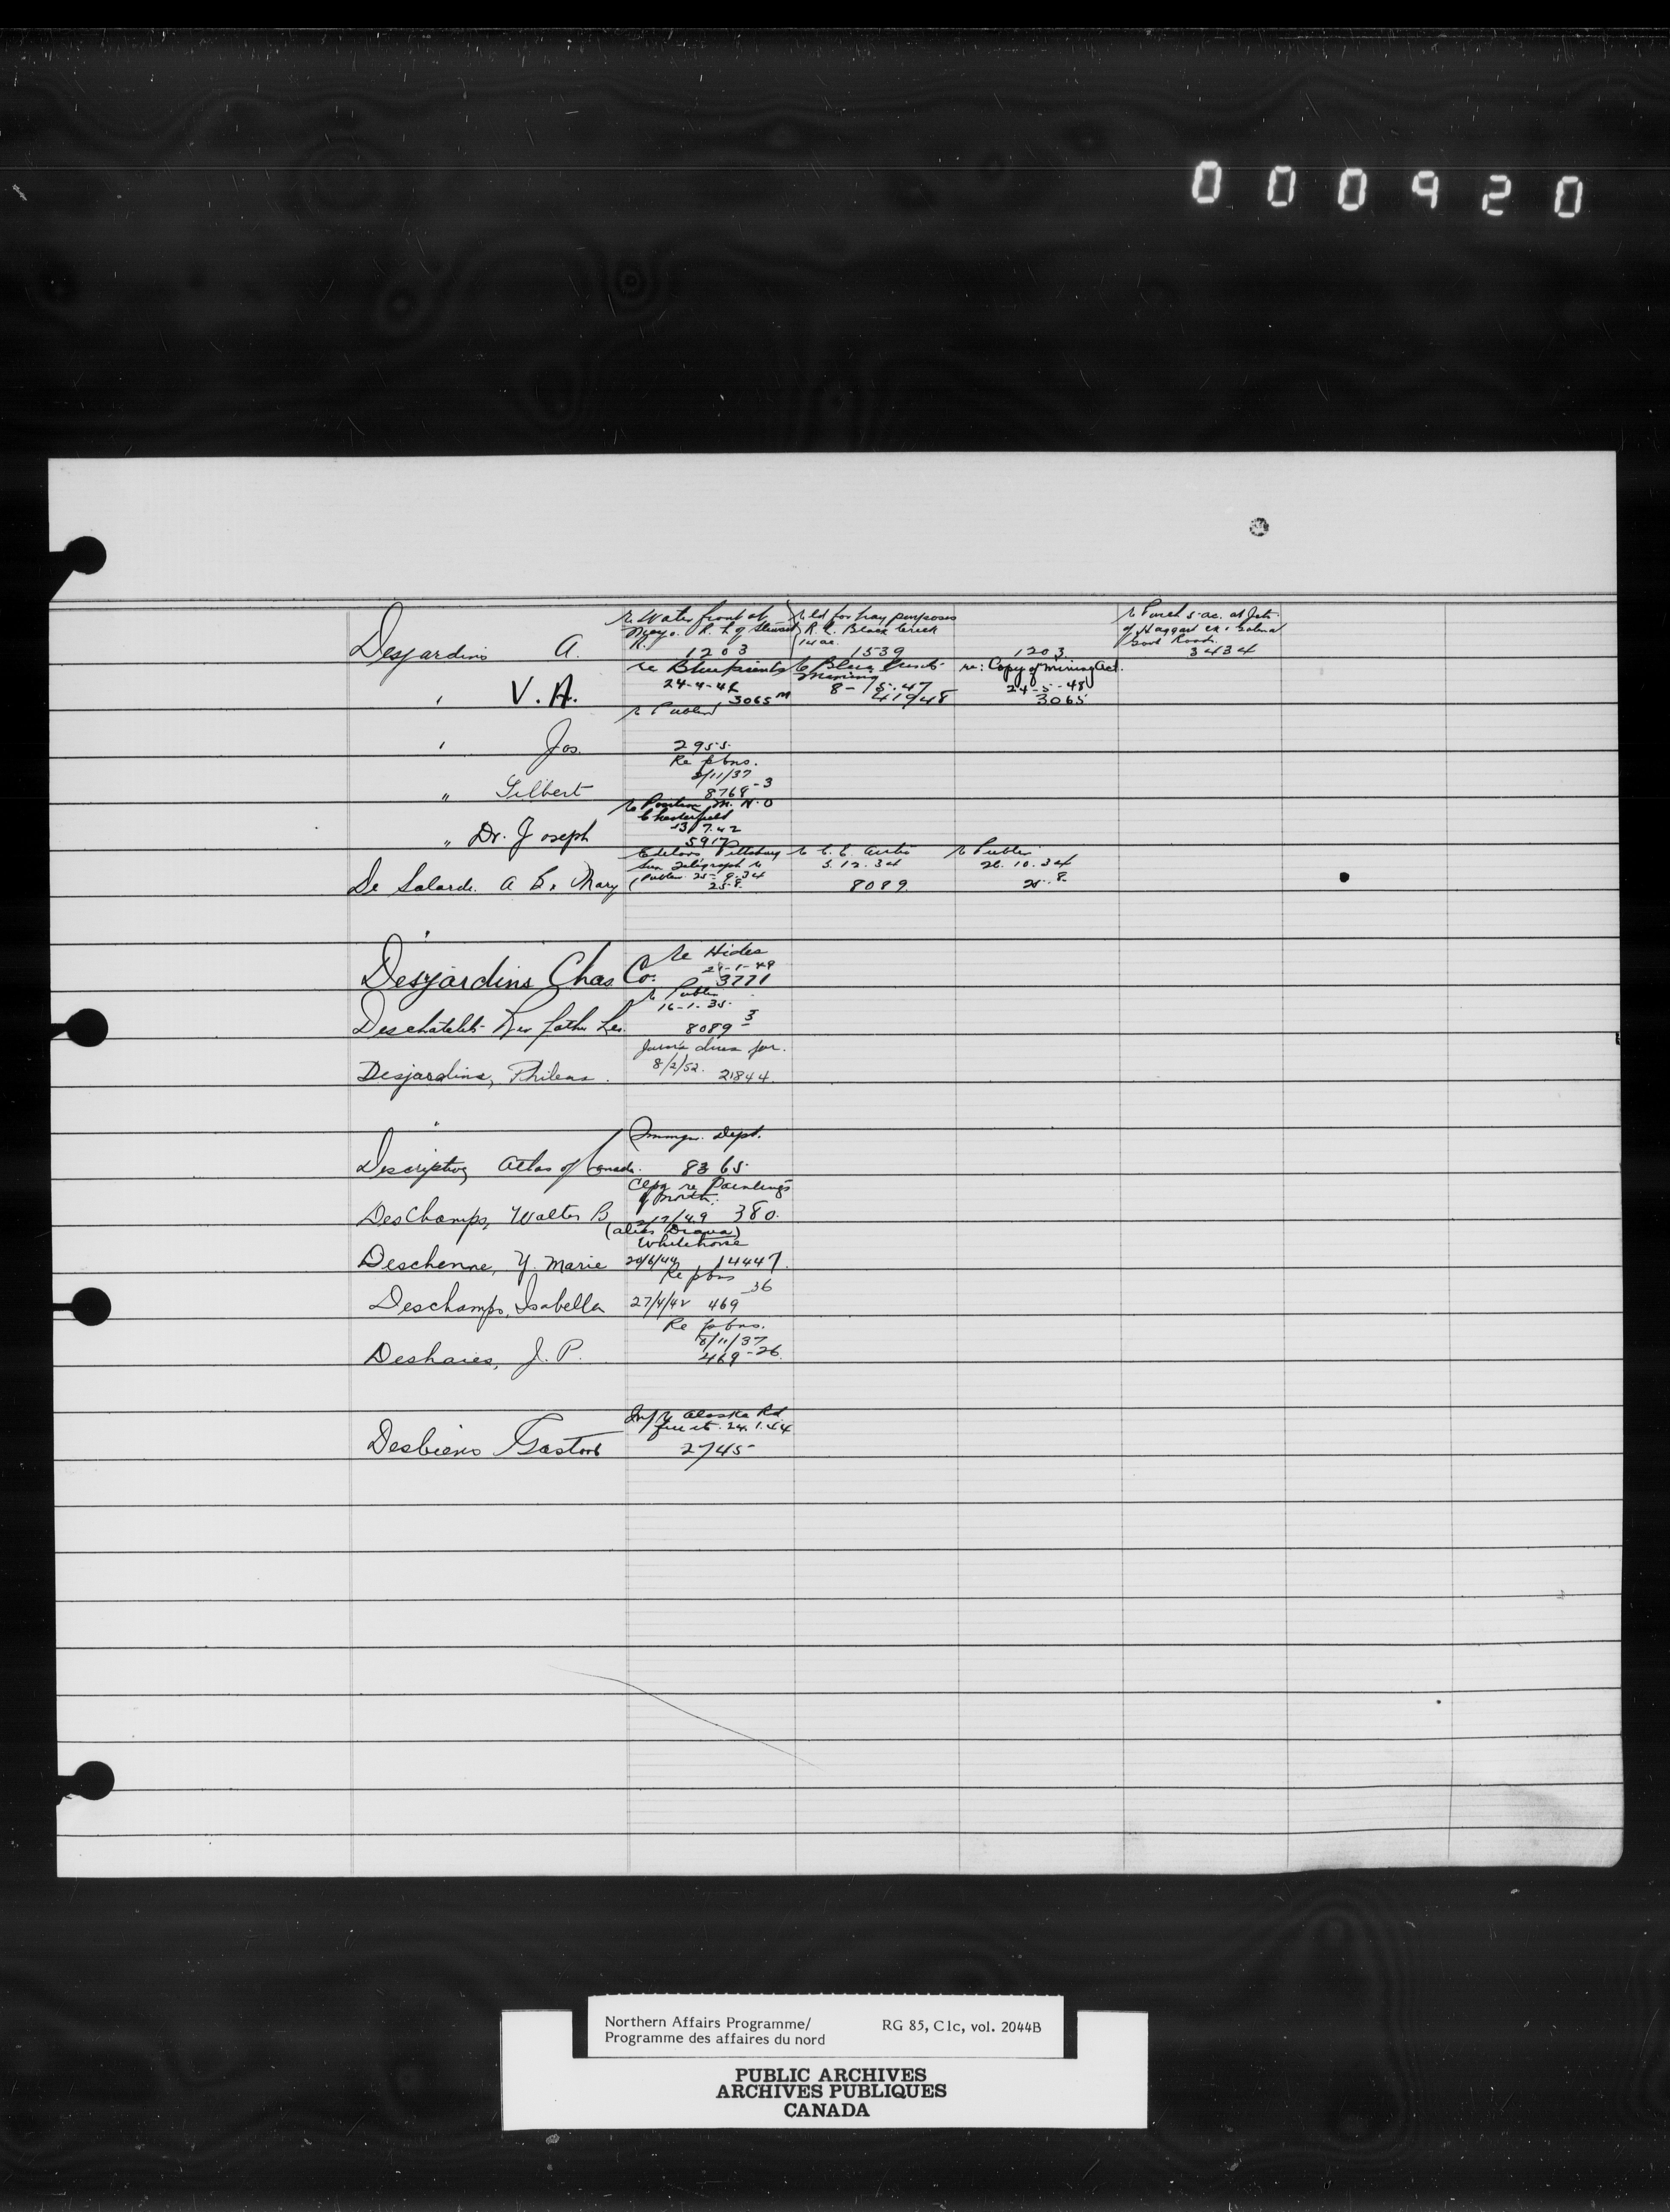 000920
re Water front at
Mayo. R. L of Stewart
R.
Desjardins A. 1203
re ld for hay purposes
R. L. Black Creek
14 ac. 1539
1203
re Purch 5 ac. at Jct.
of Haggart Ck
Govt Road.
3434
" V. A.
re Blueprints
24-4-48
3065 M
re Blue
Mining
8-15-47
41948
re: Copy of Mining Act.
24-5-48
3065
re Publen
" Jos. 2955
Re pbns.
2/11/37
" Gilbert 8768-3
re Position M. H. O
Chesterfield
13 7.42
" Dr. Joseph 5917
Editors Pittsburg
Sun Telegraph re
Publen 25-8-34
De Salardi A E. Mary 258
re C. E. Arctic
3.12.34
8089
re Publen
26.10.34
258
re Hides
21-1-49
Desjardins Chas Co. 3771
re Publen
16-1-35.
Deschatelets Rev father Leo. 8089 3
8/2/52.
Desjardins, Phileas. 21844.
Immgn. Dept.
Descriptive Atlas of Canada. 8365
Clpg re Paintings
of North.
DesChamps, Walter B 2/7/49 380.
(alias Diana)
Whitehorse
Deschenne, Y. Marie 20/6/44 14447.
Re pbns
Deschamps, Isabella 27/4/42 469-36
Re pbns.
8/11/37
Deshaies, J. P. 469-26.
Inf re Alaska Rd
24.1.44
Desbiens Gaston 2745
Northern Affairs Programme/ RG 85, C1c, vol. 2044B
Programme des affaires du nord
PUBLIC ARCHIVES
ARCHIVES PUBLIQUES
CANADA